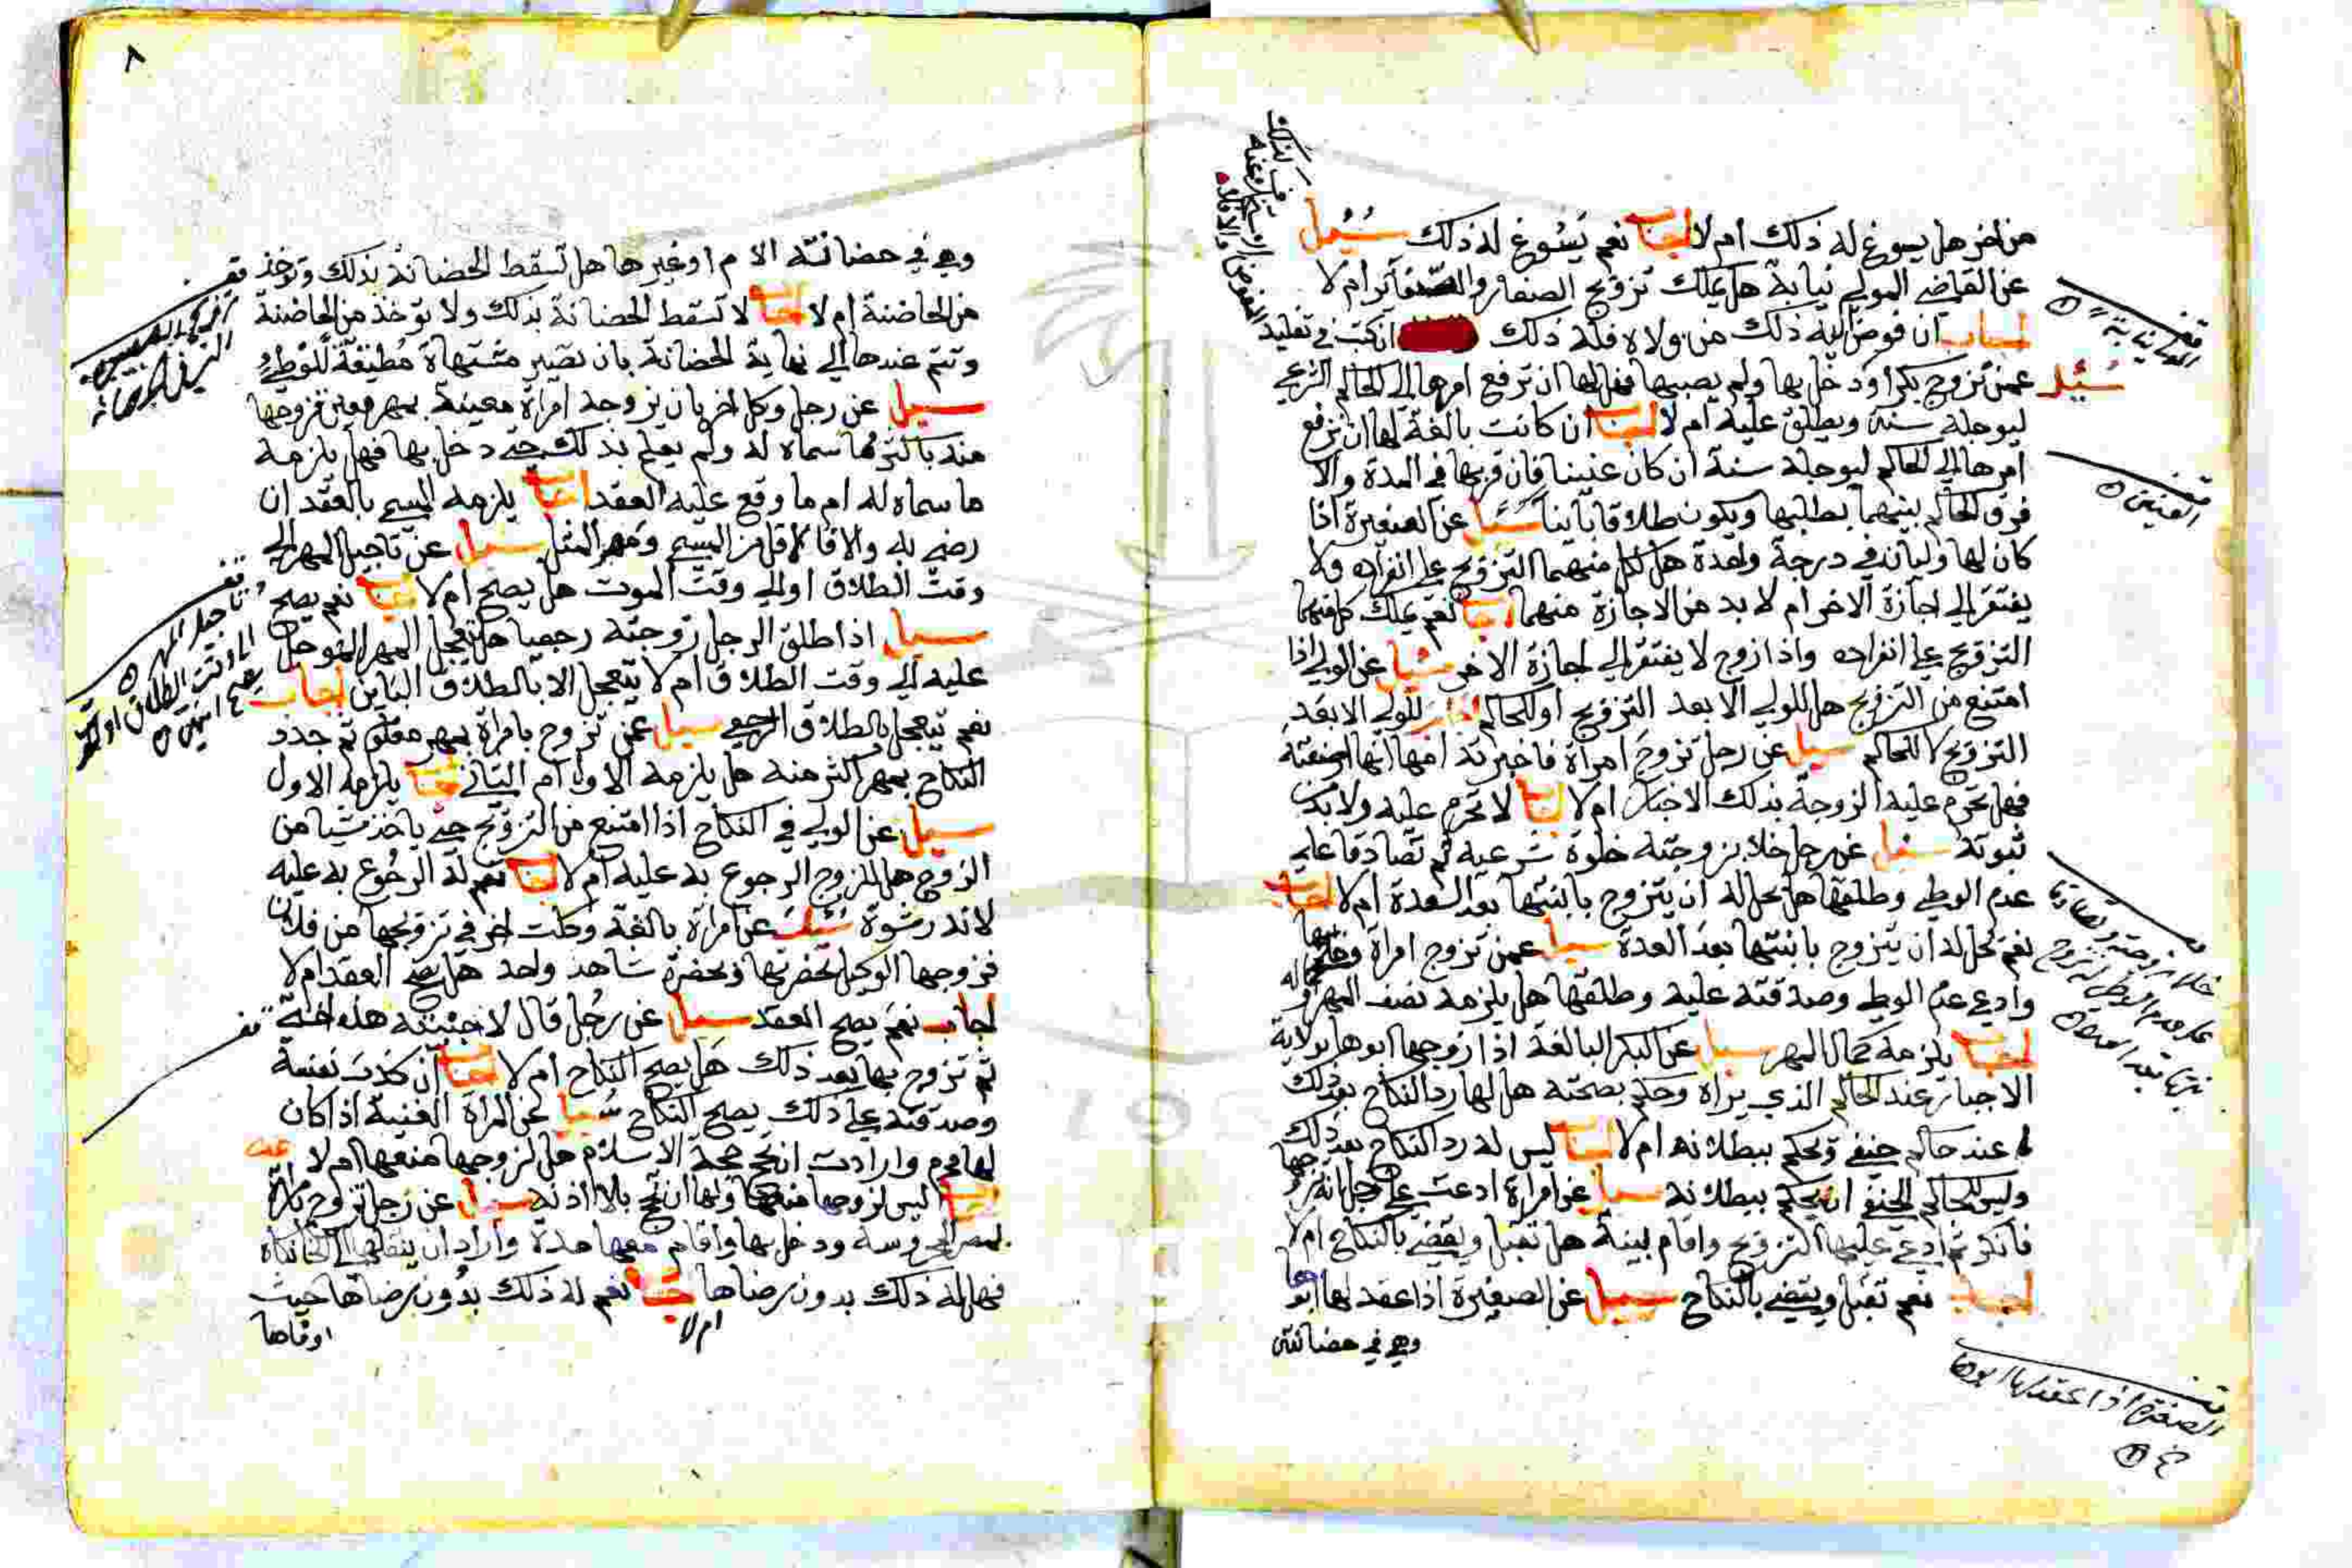 من اخر هل يسوغ له ذلك ام لا اجاب نعم يسوغ له ذلك سئل
عن القاضي المولى نيابة هل يملك تزويج الصغار والصغائر ام لا
اجاب ان فوض اليه ذلك من ولاه فله ذلك ان كتب في تقليد
سئل عمن تزوج بكرا ودخل بها ولم يصبها فهل لها ان ترفع امرها الى الحاكم الشرعي
ليوجله سنة ويطلق عليه ام لا اجاب ان كانت بالغة لها ان ترفع
امرها الى الحاكم ليوجله سنة ان كان عنينا فان قربها في المدة والا
فرق الحاكم بينهما بطلبها ويكون طلاقا باينا سئل عن الصغيرة اذا
كان لها وليان في درجة واحدة هل لكل منهما التزويج على انفراده ولا
يفتقر الى اجازة الاخر ام لا بد من الاجازة منهما اجاب نعم يملك كل منهما
التزويج على انفراده واذا زوج لا يفتقر الى اجازة الاخر سئل عن الولي اذا
امتنع من التزويج هل للولي الابعد التزويج او للحاكم اجاب للولي الابعد
التزويج لا للحاكم سيل عن رجل تزوج امراة فاخبرته امها انها ارضعته
فهل تحرم عليه الزوجة بذلك الاخبار ام لا اجاب لا تحرم عليه ولا بد من
ثبوته سئل عن رجل خلا بزوجته خلوة شرعية ثم تصادقا على
عدم الوطى وطلقها هل يحل له ان يتزوج بابنتها بعد العدة ام لا اجاب
نعم يحل له ان يتزوج بابنتها بعد العدة سيل عمن تزوج امراة وخلا بها
وادعى عدم الوطى وصدقته عليه وطلقها هل يلزمه نصف المهر او كماله
اجاب يلزمه كمال المهر سيل عن البكر البالغة اذا زوجها ابوها بولاية
الاجبار عند الحاكم الذي يراه وحكم بصحته هل لها رد النكاح بعد ذلك
عند حاكم حنفي ويحكم ببطلانه ام لا اجاب ليس له رد النكاح بعد ذلك
وليس للحاكم الحنفي ان يحكم ببطلانه سيل عن امراة ادعت على رجل انه تزوجها
فانكر ثم ادعى عليها التزويج واقام بينة هل تقبل ويقضي بالنكاح ام لا
اجاب نعم تقبل ويقضي بالنكاح سيل عن الصغيرة اذا عقد لها ابوها
وهي في حضانته
العنين
خلا بزوجته وتصادقا
على عدم الوطى له تزوج
بنتها بعد العدة
الصغيرة اذا عقد لها ابوها
٨
وهي في حضانته الام او غيرها هل تسقط الحضانة بذلك وتوخذ
من الحاضنة ام لا اجاب لا تسقط الحضانة بذلك ولا توخذ من الحاضنة
وتتم عندها الى نهاية الحضانة بان تصير مشتهاة مطيقة للوطئ
سيل عن رجل وكل اخر بان يزوجه امراة معينة بمهر معين فزوجها
منه باكثر مما سماه له ولم يعلم بذلك حتى دخل بها فهل يلزمه
ما سماه له ام ما وقع عليه العقد اجاب يلزمه المسمى بالعقد ان
رضي به والا فالاقل من المسمى ومهر المثل سيل عن تاجيل المهر الى
وقت الطلاق او الى وقت الموت هل يصح ام لا اجاب نعم يصح
سيل اذا طلق الرجل زوجته رجعيا هل يتعجل المهر الموجل
عليه الى وقت الطلاق ام لا يتعجل الا بالطلاق الباين اجاب
نعم يتعجل بالطلاق الرجعي سيل عمن تزوج بامراة بمهر معلوم ثم جدد
النكاح بمهر اكثر منه هل يلزمه الاول ام الثاني اجاب يلزمه الاول
سيل عن الولي في النكاح اذا امتنع من التزويج حتى ياخذ شيا من
الزوج هل للزوج الرجوع به عليه ام لا اجاب نعم له الرجوع به عليه
لانه رشوة سئل عن امراة بالغة وكلت اخر في تزويجها من فلان
فزوجها الوكيل بحضرتها وبحضرة شاهد واحد هل يصح العقد ام لا
اجاب نعم يصح العقد سيل عن رجل قال لاجنبية هذه
ثم تزوج بها بعد ذلك هل يصح النكاح ام لا اجاب ان كذب نفسه
وصدقته على ذلك يصح النكاح سيل عن المراة الغنية اذا كان
لها محرم وارادت ان تحج حجة الاسلام هل لزوجها منعها ام لا
اجاب ليس لزوجها منعها ولها ان تحج بلا اذنه سيل عن رجل تزوج بامراة
بمصر المحروسة ودخل بها واقام معها مدة واراد ان ينقلها الى
فهل له ذلك بدون رضاها ام لا اجاب نعم له ذلك بدون رضاها حيث
اوفاها
تاجيل المهر